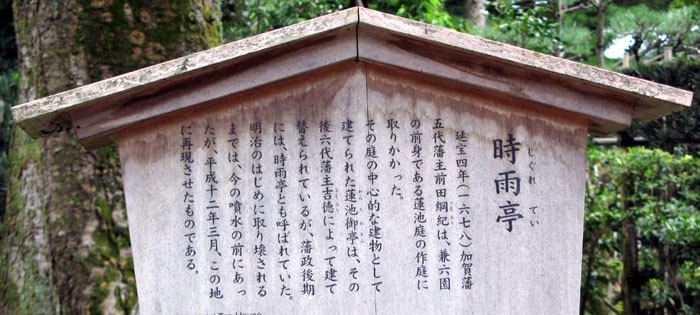 しぐれ てい
時雨亭
延宝四年(一六七八)加賀藩
五代藩主前田綱紀は、兼六園
の前身である蓮池庭の作庭に
取りかかった。
その庭の中心的な建物として
建てられた蓮池御亭は、その
後六代藩主吉徳によって建て
替えられているが、藩政後期
には、時雨亭とも呼ばれていた。
明治のはじめに取り壊される
までは、今の噴水の前にあっ
たが、平成十二年三月、この地
に再現させたものである。